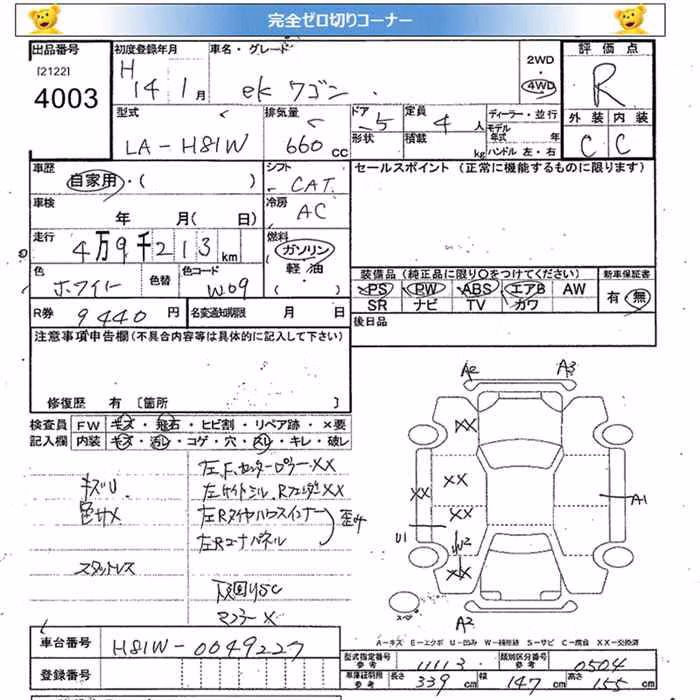 完全ゼロ切りコーナー
出品番号 初度登録年月 車名・グレード 2WD・4WD 評価点
[2122] 4003 H14 1月 ekワゴン R
型式 排気量 ドア 5 定員 4人 ディーラー・並行 外装 内装
LA-H81W 660cc 形状 積載 kg モデル年式 年 C C
ハンドル 左・右
車歴 シフト セールスポイント (正常に機能するものに限ります)
自家用・( ) CAT
車検 冷房
年 月( 日) AC
走行 4万9千213km 燃料
ガソリン
色 色替 色コード 軽油・
ホワイト W09 ( )
装備品(純正品に限り〇をつけてください) 新車保証書
PS PW ABS エアB AW 有・無
SR ナビ TV カワ
R券 9440円 名変通知期限 月 日 後日品
注意事項申告欄(不具合内容等は具体的に記入して下さい)
修復歴 有 [箇所 ]
検査員 FW キズ・飛石・ヒビ割・リペア跡・×要
記入欄 内装 キズ・汚レ・コゲ・穴・スレ・キレ・破レ
A2 A3
XX
XX XX
XX
A1
U1
A2
左F、センターピラーXX
キズU 左サイドシル、RフェンダーXX
色サメ 左Rタイヤハウスインナー
左Rコーナーパネル
スタットレス
下回りSC
マフラーX
スペア
A-キズ E-エクボ U-凹み W-補修跡 S-サビ C-腐食 XX-交換済
車台番号 H81W-0049227
登録番号
型式指定番号 参考 11113 類別区分番号 参考 0504
車庫証明用 参考 長さ 339cm 幅 147cm 高さ 155cm